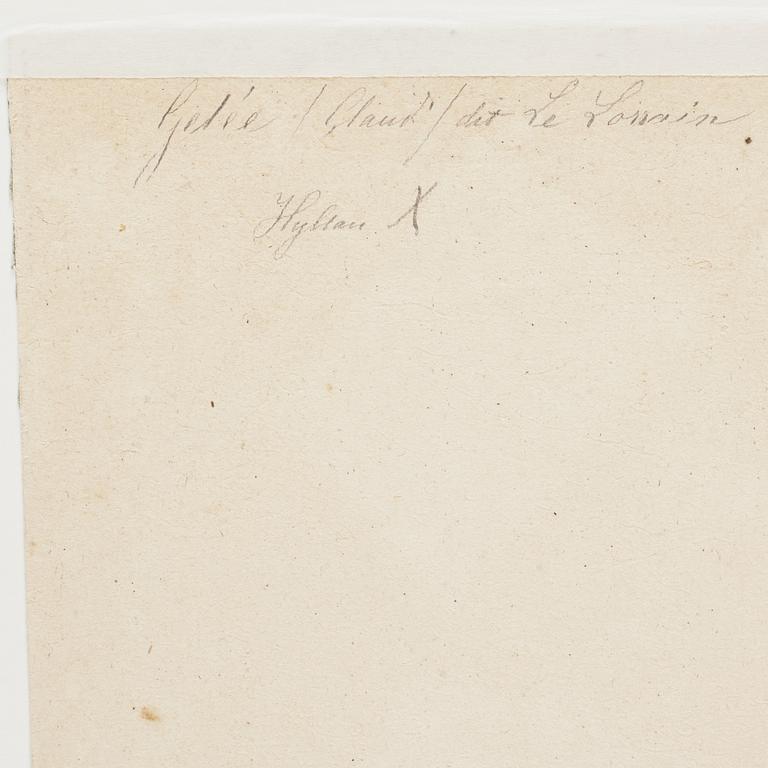 Gelée / Claud / dit Le Lorrain
Hyllan X